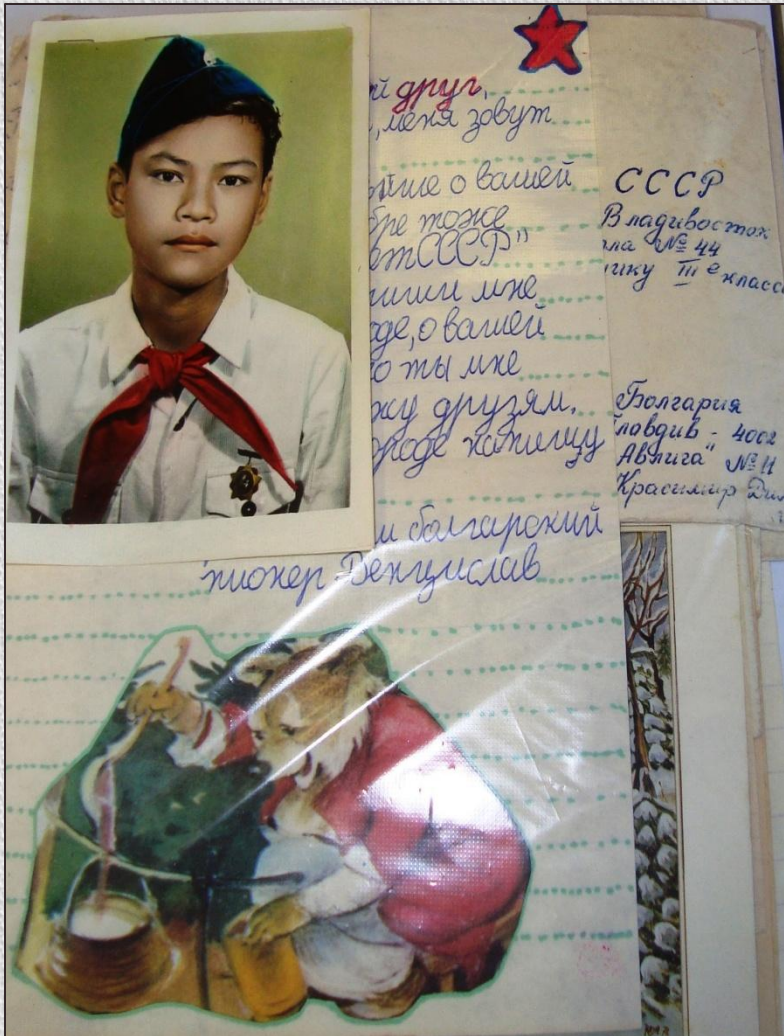 й друг,
, меня зовут
ьше о вашей
бре тоже
ет СССР"
пиши мне
оде, о вашей
о ты мне
жу друзям.
ороде напишу
й болгарский
пионер Венцислав
СССР
Владивосток
ла № 44
нику III е класс
Болгария
ловдив - 4002
"Авлига" № 11
Красимир Ди